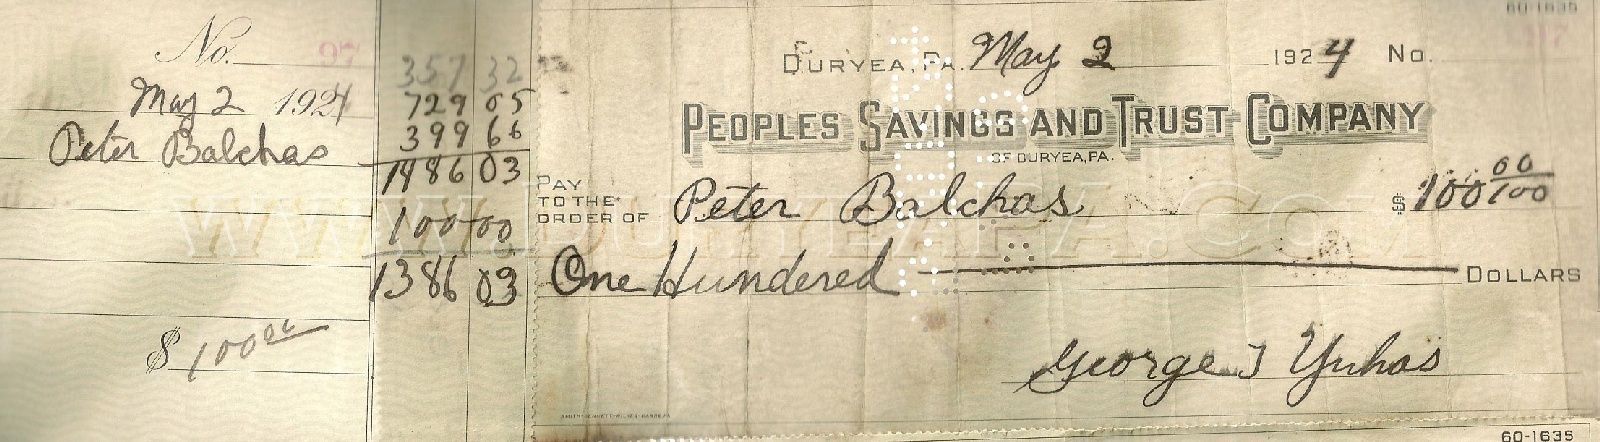 60-1635
No. 97
May 2 1924
Peter Balchas
357 32
729 05
399 66
1486 03
100 00
1386 03
$ 100 00
DURYEA, PA. May 2 1924 No.
PEOPLES SAVINGS AND TRUST COMPANY
OF DURYEA, PA.
PAY TO THE ORDER OF Peter Balchas $ 100 00/100
One Hundered DOLLARS
George J Yuhas
WWW.DURYEAPA.COM
60-1635